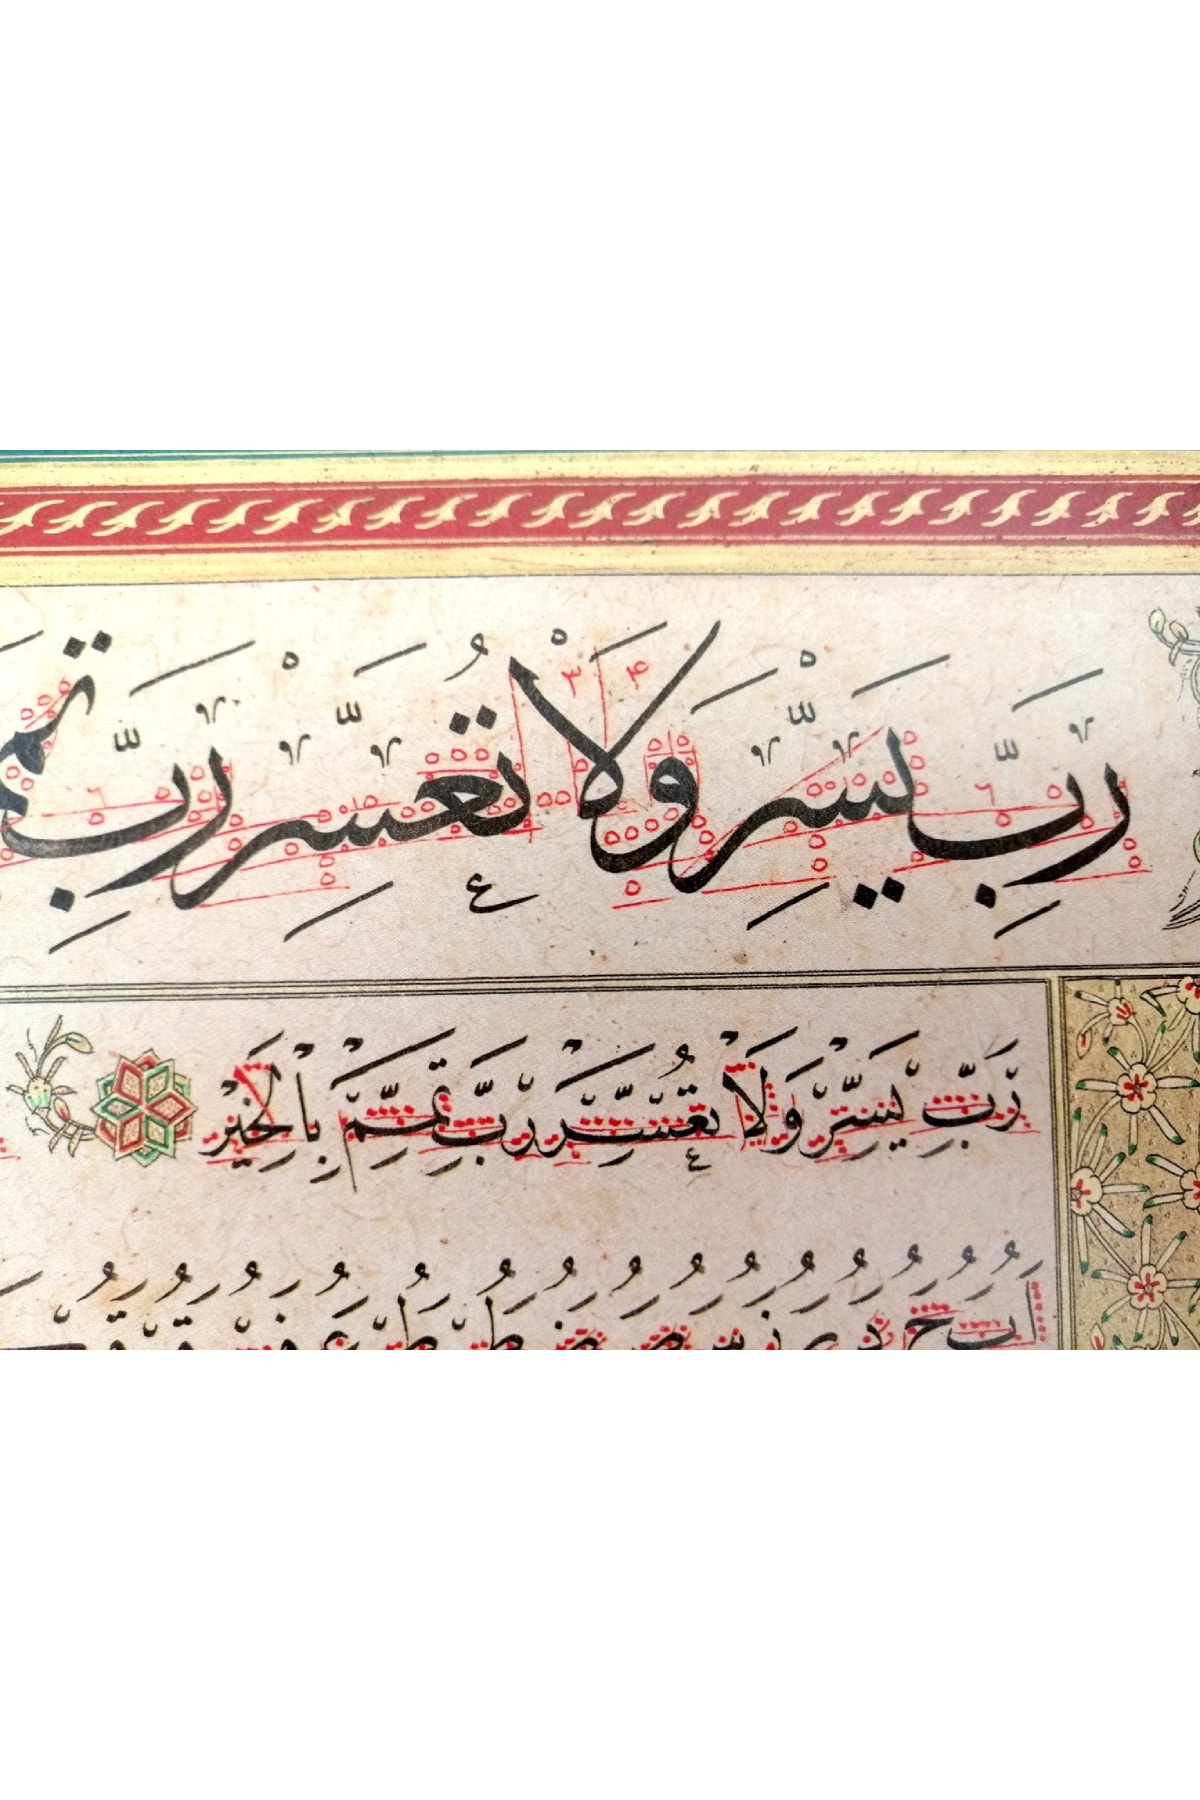 رَبِّ يَسِّرْ وَلَا تُعَسِّرْ رَبِّ تَمِّ
رَبِّ يَسِّرْ وَلَا تُعَسِّرْ رَبِّ تَمِّمْ بِالْخَيْرِ
ا ب ج د ر ز س